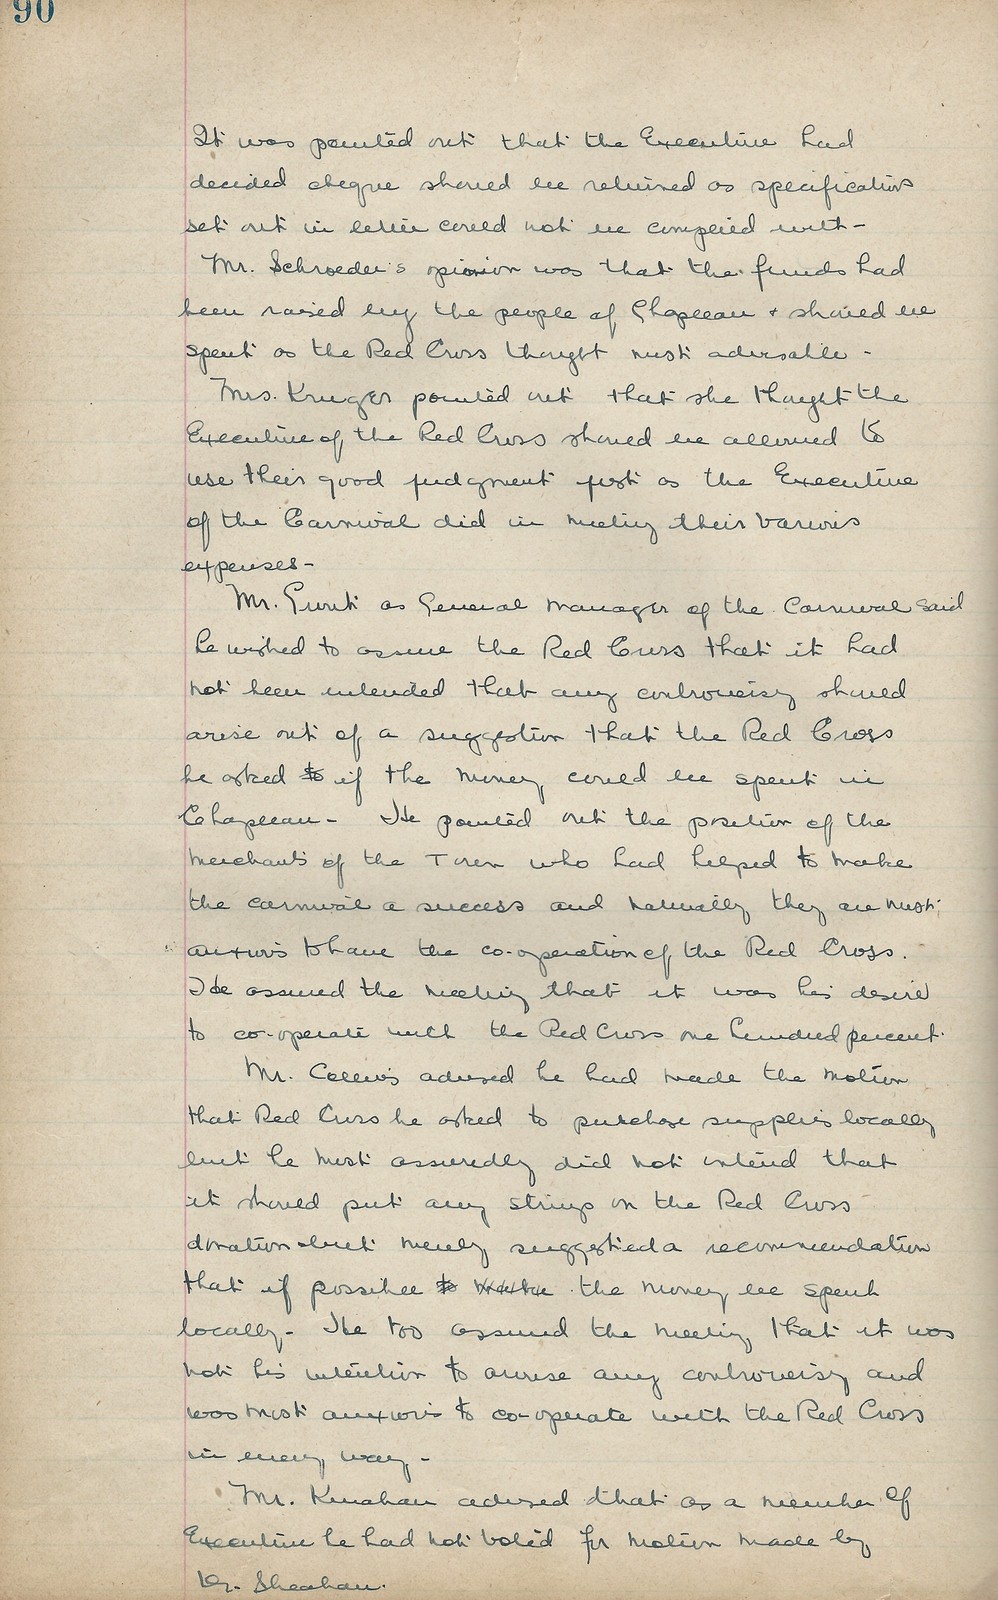 90
It was pointed out that the Executive had
decided cheque should be returned as specifications
set out in letter could not be complied with -
Mr. Schroeder's opinion was that the funds had
been raised by the people of Chapleau + should be
spent as the Red Cross thought most advisable -
Mrs. Kruger pointed out that she thought the
Executive of the Red Cross should be allowed to
use their good judgment just as the Executive
of the Carnival did in meeting their various
expenses -
Mr. as General Manager of the Carnival said
he wished to assure the Red Cross that it had
not been intended that any controversy should
arise out of a suggestion that the Red Cross
be asked to if the money could be spent in
Chapleau - He pointed out the position of the
merchants of the Town who had helped to make
the carnival a success and naturally they are most
anxious to have the co-operation of the Red Cross.
He assured the meeting that it was his desire
to co-operate with the Red Cross one hundred percent.
Mr. Collins advised he had made the motion
that Red Cross be asked to purchase supplies locally
but he most assuredly did not intend that
it should put any strings on the Red Cross
donation but merely suggested a recommendation
that if possible to the money be spent
locally - He too assured the meeting that it was
not his intention to arouse any controversy and
was most anxious to co-operate with the Red Cross
in every way -
Mr. Kinahan advised that as a member of
Executive he had not voted for motion made by
Dr. Sheahan.